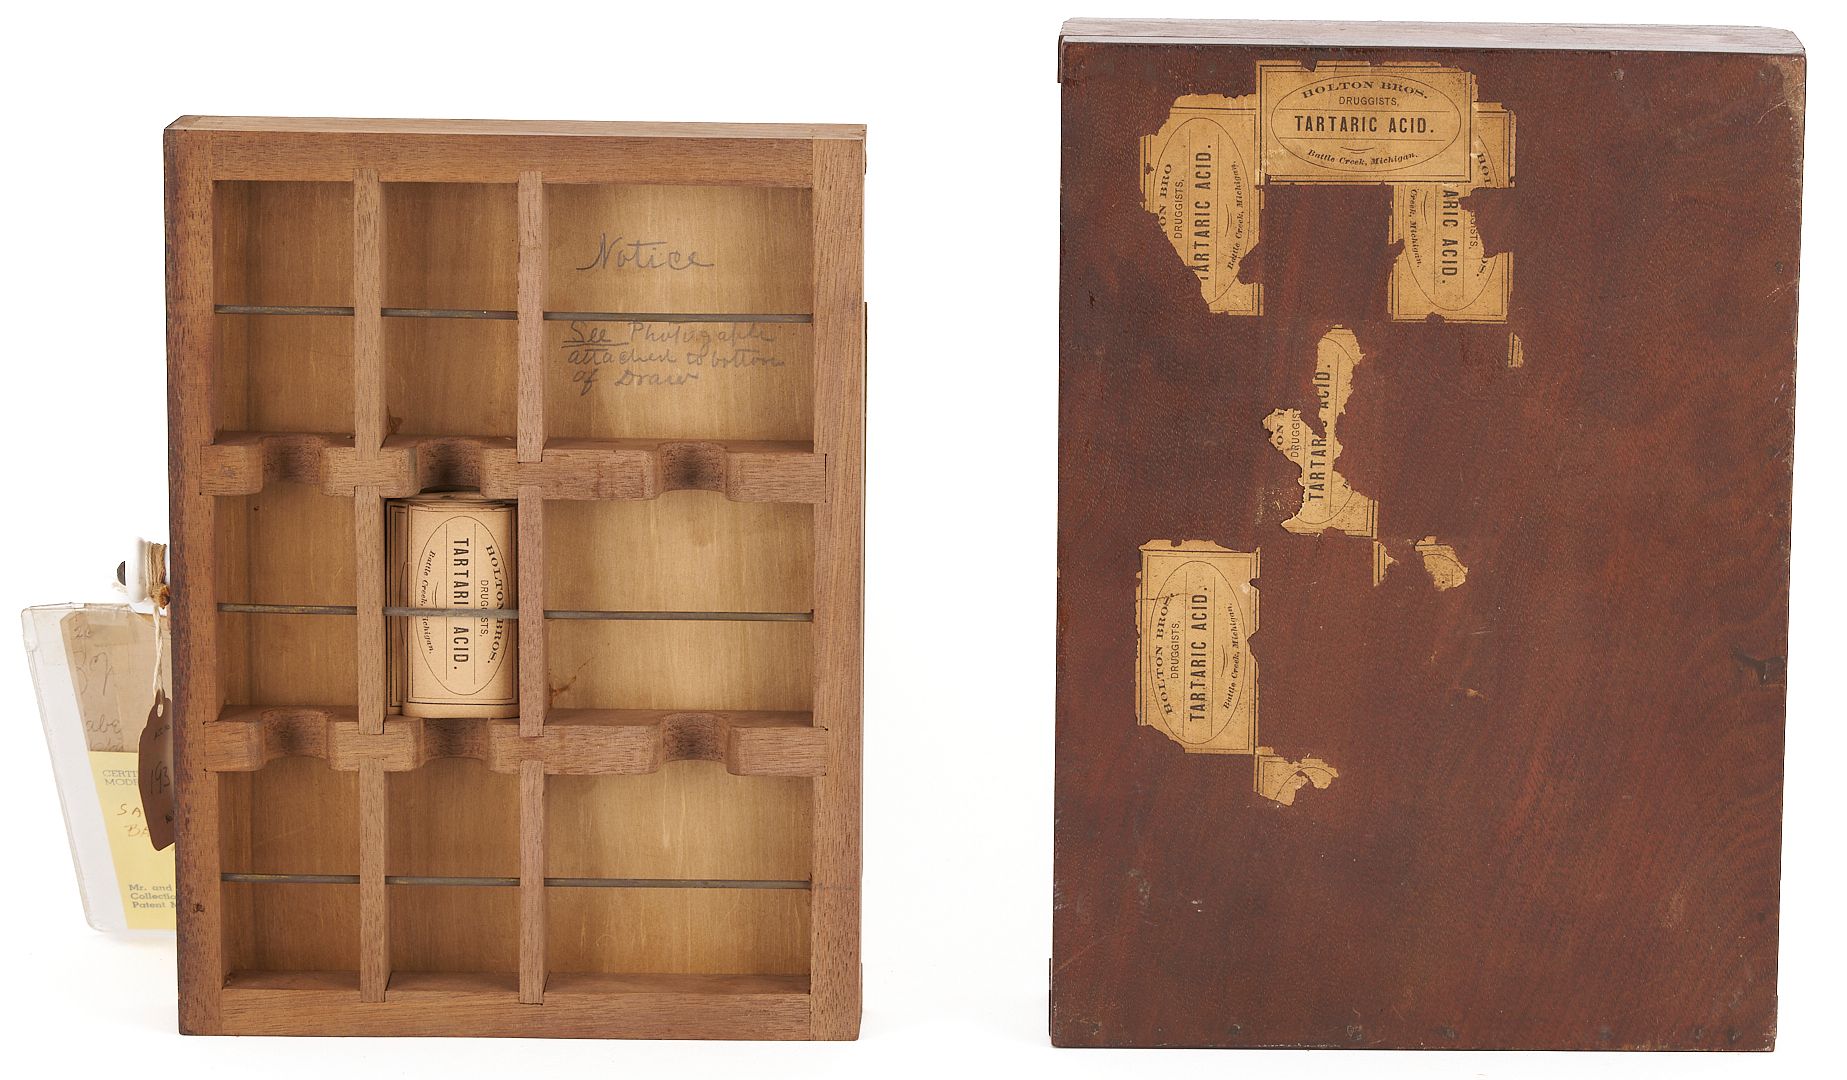 Notice
See Photograph
attached to bottom
of Draw
HOLTON BROS.
DRUGGISTS,
TARTARIC ACID.
Battle Creek, Michigan.
193
CERTI
MODE
SA
BA
Mr. and
Collectio
Patent M
HOLTON BROS.
DRUGGISTS,
TARTARIC ACID.
Battle Creek, Michigan.
ON BRO
DRUGGISTS,
TARTARIC ACID.
Battle Creek, Michigan.
HOL
OS.
GISTS,
ARIC ACID.
Creek, Michigan.
ON B
DRUGGIS
TARTAR
ACID.
HOLTON BROS.
DRUGGISTS,
TARTARIC ACID.
Battle Creek, Michigan.